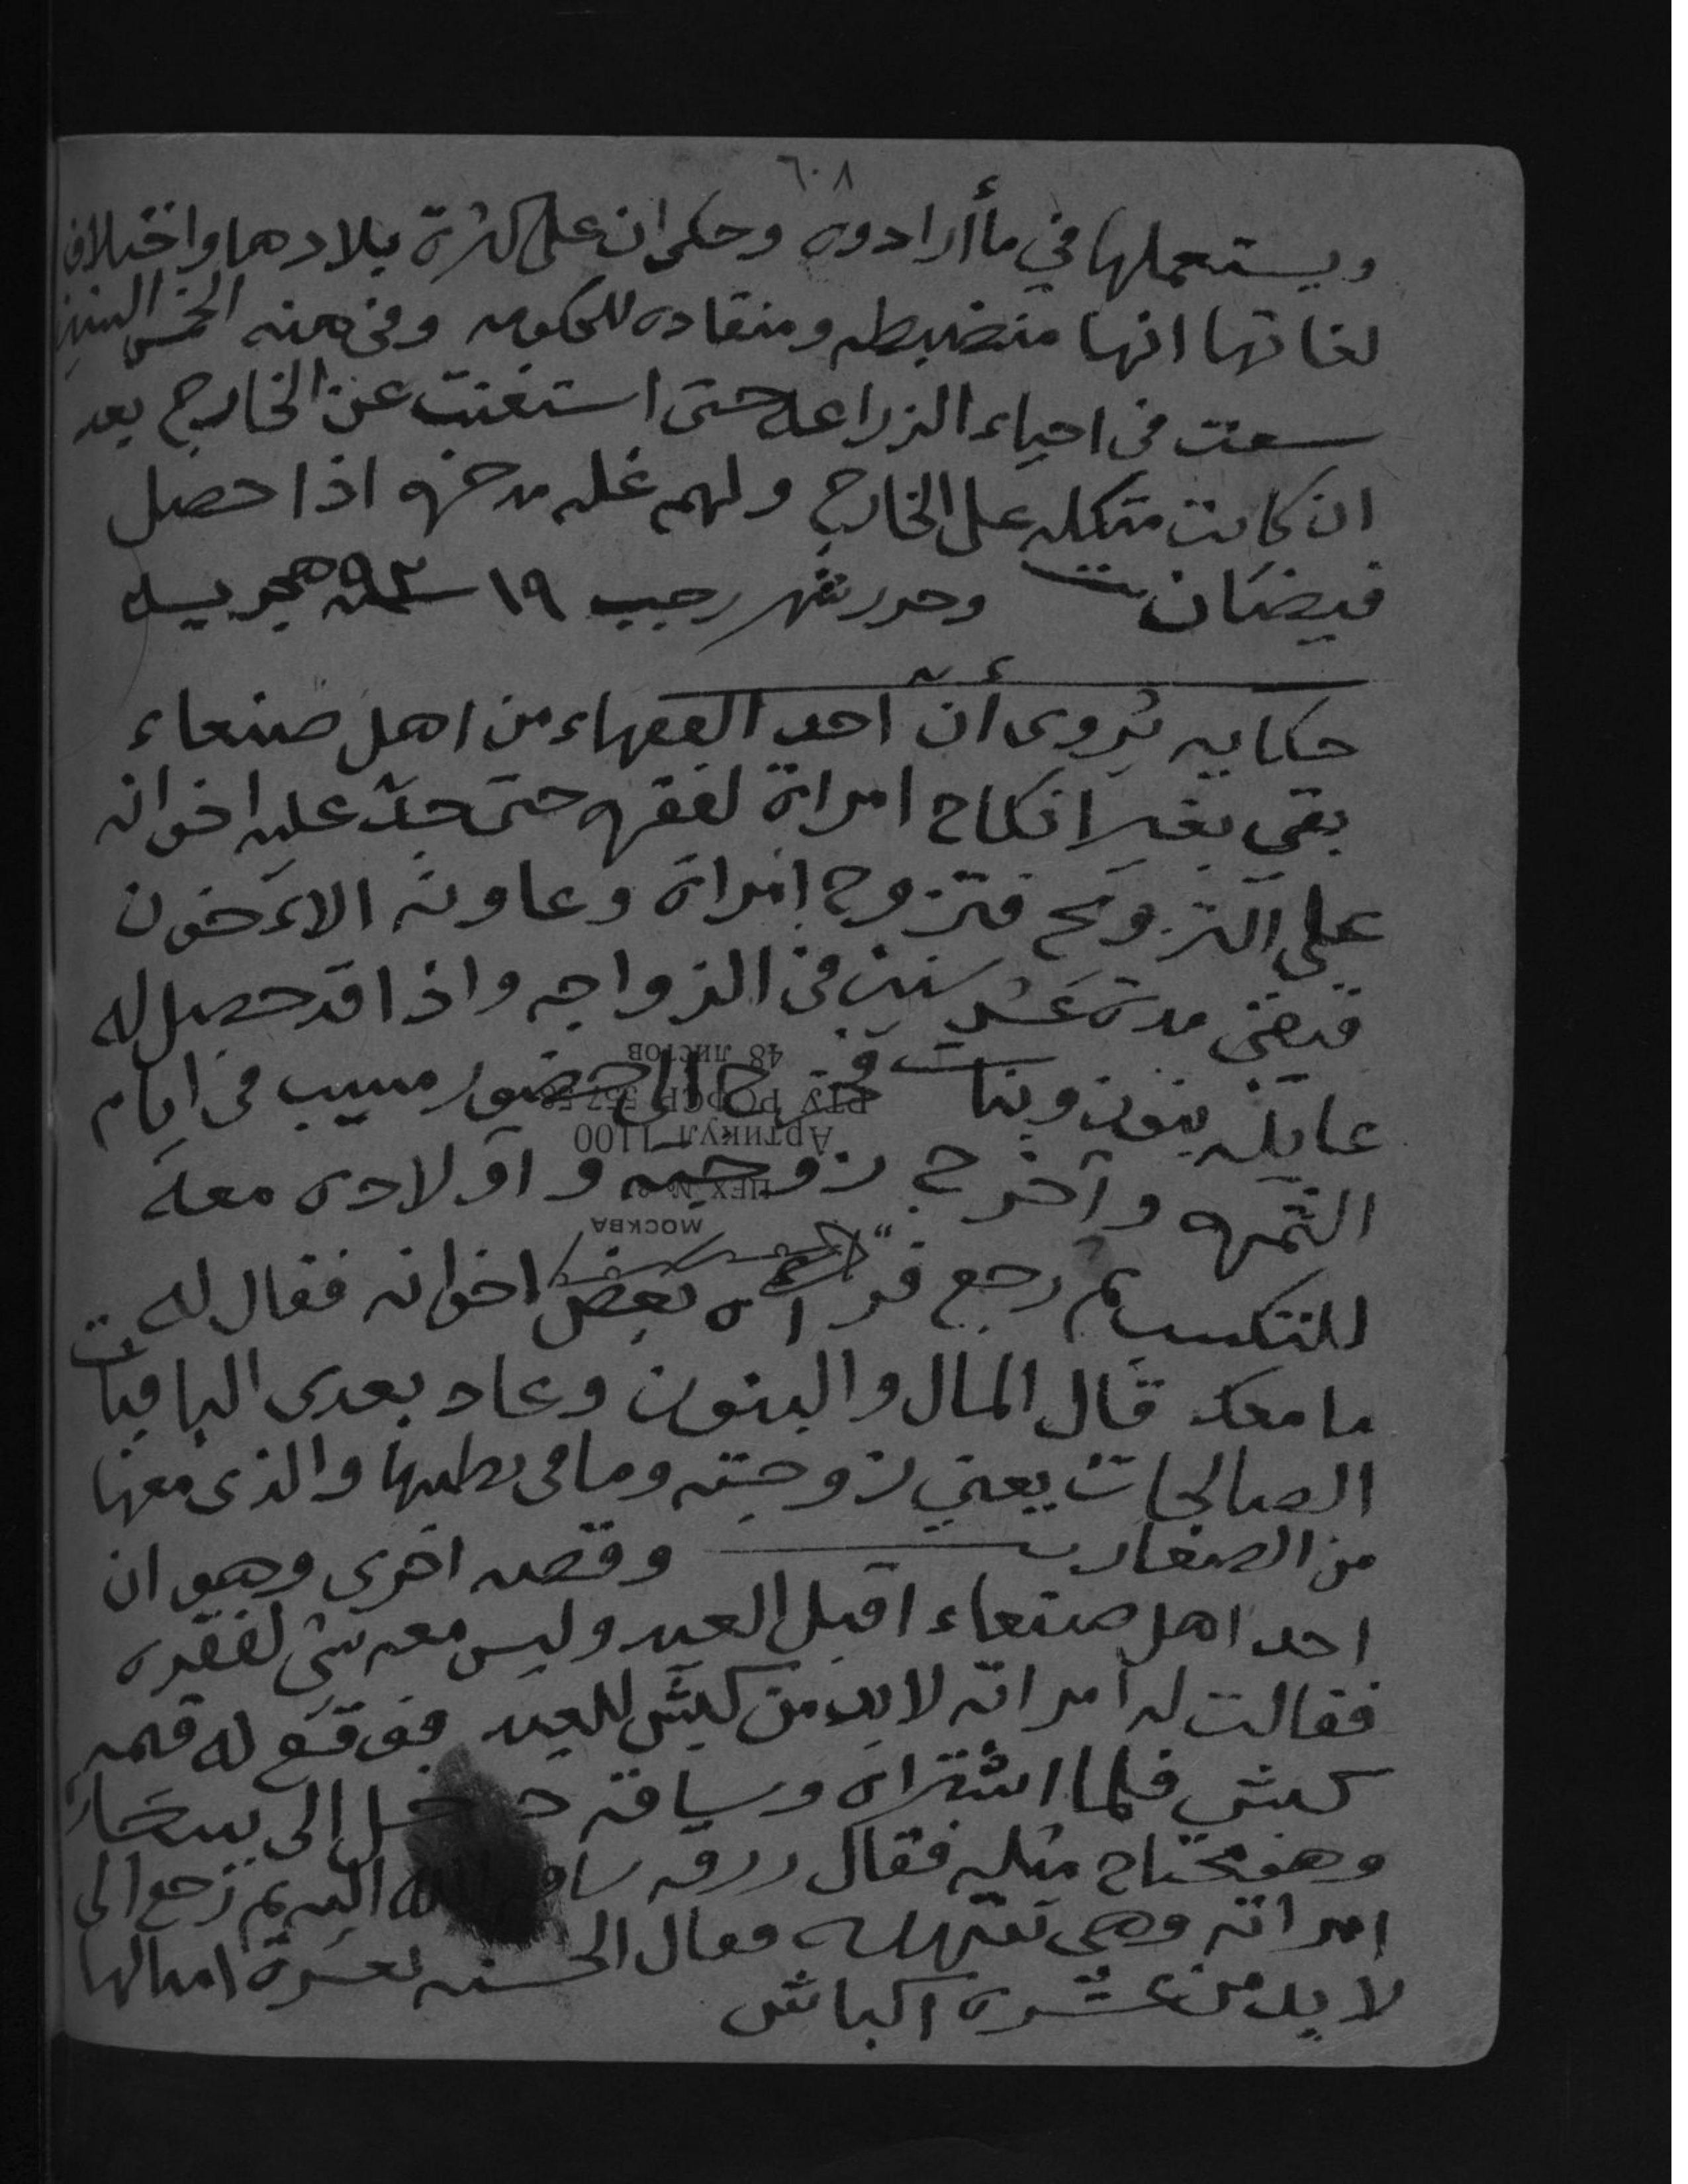 ٦٠٨
ويستعملها في ما أرادوه وحكى ان على كثرة بلادها واختلاف
لغاتها انها منضبطه ومنقاده للحكومه وفي هذه الخمس السنين
سعت في احياء الزراعه حتى استغنت عن الخارج بعد
ان كانت متكله على الخارج ولهم غله مدخره اذا حصل
فيضان وحرر شهر رجب ١٩ سنة ٩٣ هجريه
حكايه يروى أن أحد الفقهاء من اهل صنعاء
بقي بغير انكاح امراة لفقره حتى جد عليه اخوانه
على التزويج فتزوج امراة وعاونه الاءخون
فبقى مدة عشر سنين في الزواجه واذا قد حصل له
عايله بنون وبنات فخرج الى حضور مسيب في ايام
الثمره وآخرج زوجته وآولادى معه
للتكسب ثم رجع فرآه بعض اخوانه فقال له
ما معك قال المال والبنون وعاد بعدى الباقيات
الصالحات يعني زوجته وما في بطنها والذى معها
من الصغار وقصه اخرى وهو ان
احد اهل صنعاء اقبل العيد وليس معه شي لفقره
فقالت له امراته لابد من كبش للعيد فوقع له قيمه
كبش فلما اشتراه وساقه دخل الى بيت جار
وهو محتاج مثله فقال رزق ساقه الله اليه ثم رجع الى
امراته وهي فقال الحسنه بعشرة امثالها
لا بد من عشره اكباش
48 листов
РТУ РСФСР 557-58
Артикул 1100
ЦЕХ №
МОСКВА